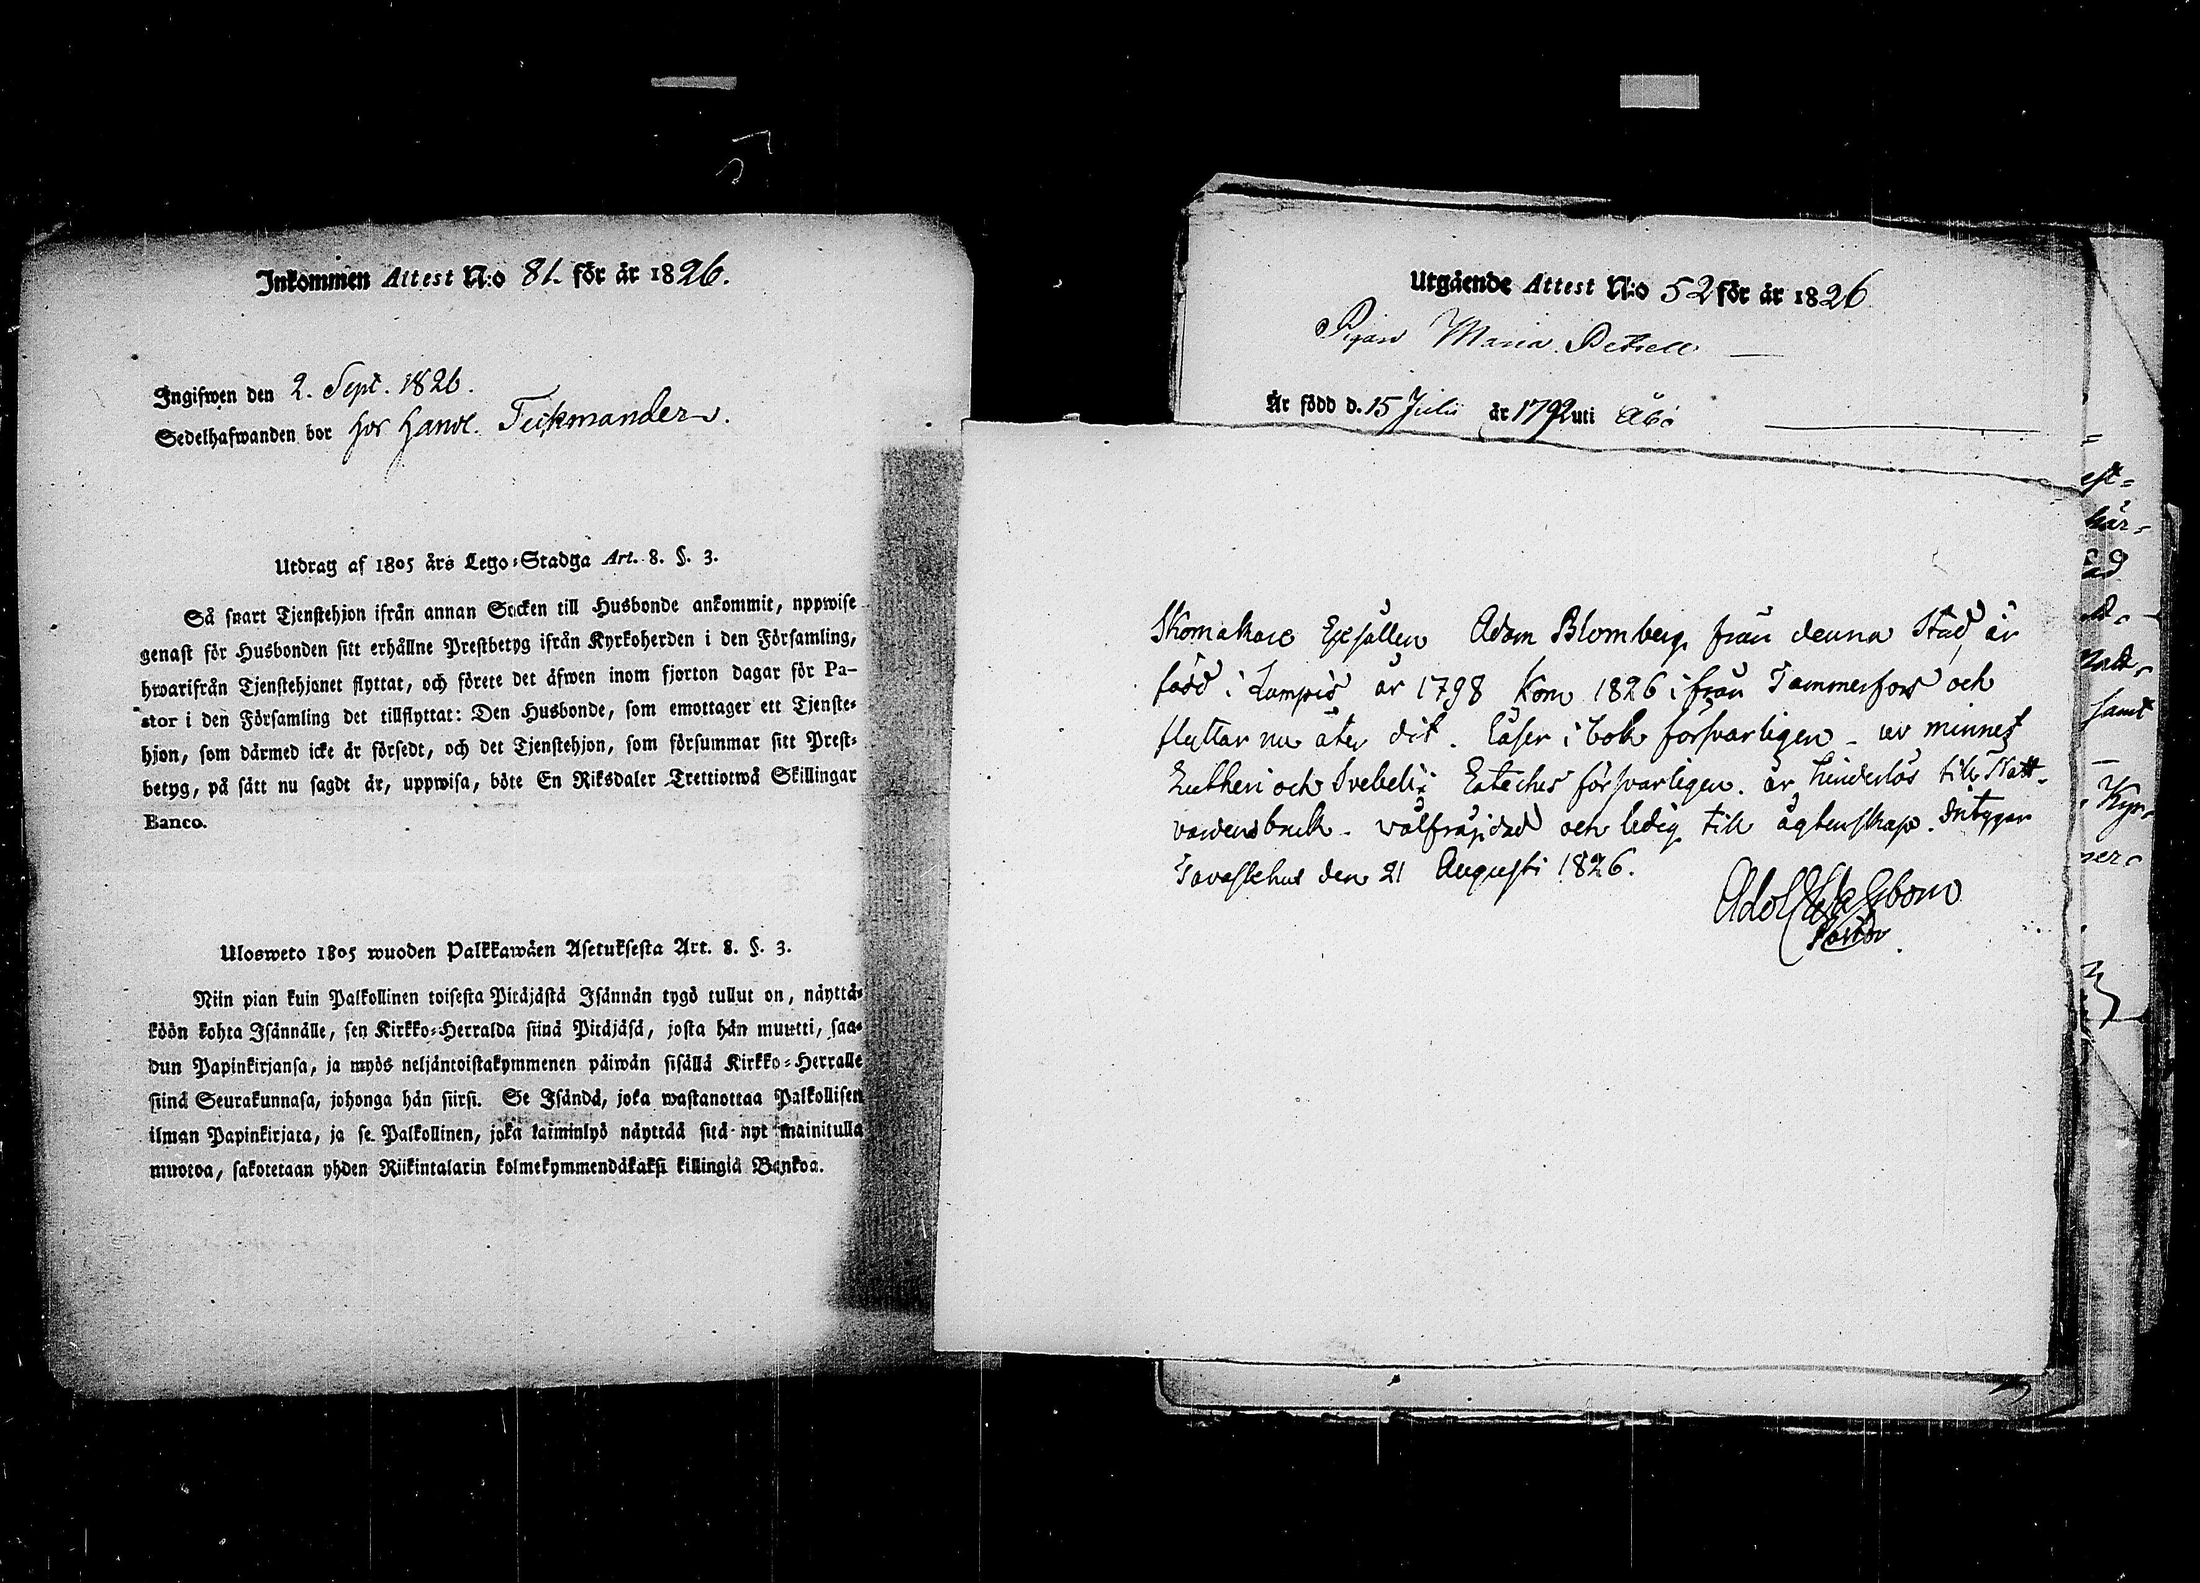 Inkommen Attest N:o 81. för år 1826.
Ingifwen den 2. Sept. 1826.
Sedelhafwanden bor hos Handl. Teckmander.
Utdrag af 1805 års Lego-Stadga Art. 8. §. 3.
Så snart Tjenstehjon ifrån annan Socken till Husbonde ankommit, uppwise
genast för Husbonden sitt erhållne Prestbetyg ifrån Kyrkoherden i den Församling,
hwarifrån Tjenstehjonet flyttat, och förete det äfwen inom fjorton dagar för Pa-
stor i den Församling det tillflyttat: Den Husbonde, som emottager ett Tjenste-
hjon, som därmed icke är försedt, och det Tjenstehjon, som försummar sitt Prest-
betyg, på sätt nu sagdt är, uppwisa, böte En Riksdaler Trettiotwå Skillingar
Banco.
Ulosweto 1805 wuoden Palkkawäen Asetuksesta Art. 8. §. 3.
Niin pian kuin Palkollinen toisesta Pitäjästä Isännän tygö tullut on, näyttä-
köön kohta Isännälle, sen Kirkko-Herralda siinä Pitäjäsä, josta hän muutti, saa-
dun Papinkirjansa, ja myös neljäntoistakymmenen päiwän sisällä Kirkko-Herralle
siinä Seurakunnasa, johonga hän siirsi. Se Isändä, joka wastanottaa Palkollisen
ilman Papinkirjata, ja se Palkollinen, joka laiminlyö näyttää sitä nyt mainitulla
muotoa, sakotetaan yhden Riikintalarin kolmekymmendäkaksi killingiä Bankoa.
Utgående Attest N:o 52 för år 1826
Pigan Maria Petrell
Är född d. 15 Julii år 1792 uti Åbo
Skomakare Gesällen Adam Blomberg från denna Stad är
född i Lampis år 1798 kom 1826 ifrån Tammerfors och
flyttar nu åter dit. Läser i bok försvarligen - ur minnet
Lutheri och Svebelii Cateches försvarligen. är hinderlös till Natt-
vardens bruk - välfräjdad och ledig till ägtenskap. Intygar
Tavastehus den 21 Augusti 1826.
Adolf
Pastor
est-
här-
samt
Kyr-